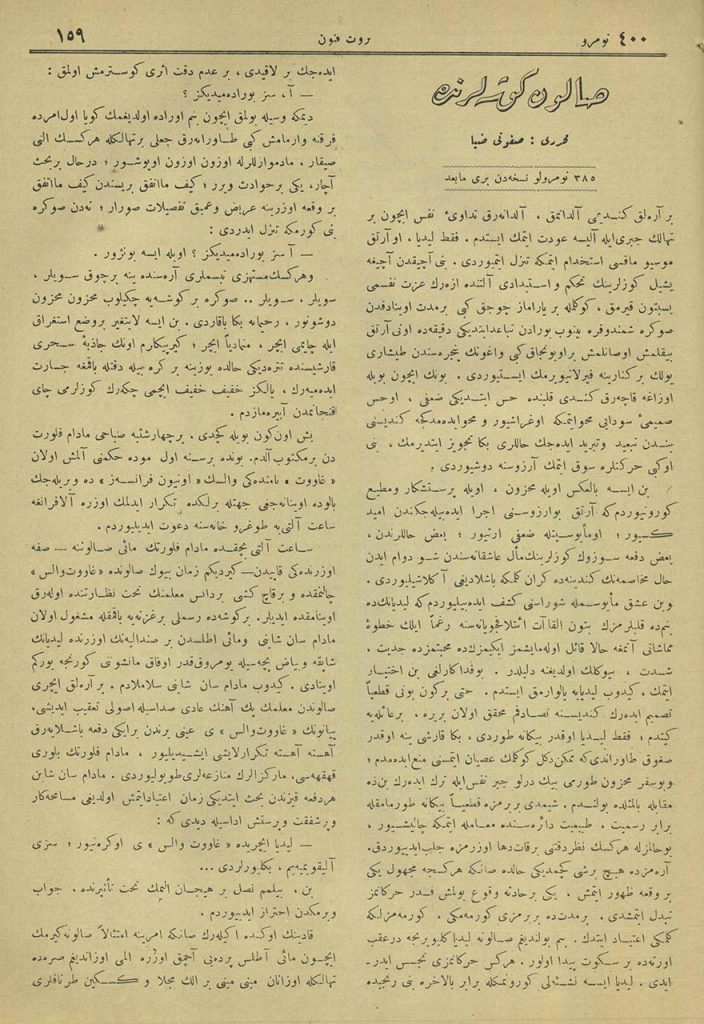 ٤٠٠ نومرو
ثروت فنون
١٥٩
صالون كوشه‌لرنده
محرری : صفوتی ضیا
٣٨٥ نومرولو نسخه‌دن بری مابعد
بر آره‌لق كندمی آلداتمق ، آلدانه‌رق تداوئ نفس ایچون بر
تهالك جبری‌ایله آلیسه عودت ایتمك ایستدم . فقط لیدیا ، اورتق
موسیو ماقسی استخدام ایتمكه تنزل ایتمیوردی . بنی آچیقدن آچیغه
یشیل كوزلرینك تحكم و استبدادی آلتنده ازه‌رك عزت نفسمی
بسبتون قیرمق ، كوكلمله یاراماز چوجق كبی برمدت اوینادقدن
صوكره شمندوفره بینوب بورادن تباعد ایتدیكی دقیقه‌ده اونی آرتق
بیقلمش اوصانلمش براویونجاق كبی واغونك پنجره‌سندن طیشاری
یولك بر كنارینه فیرلاتیویرمك ایستیوردی . بونك ایچون بویله
اوزاغه قاچه‌رق كندی قلبنده حس ایتدیكی ضعفی ، اوحس
صمیمئ سودایی محو ایتمكه اوغراشیور و محو ایده‌مدكجه كندیسنی
بندن تبعید و تبرید ایده‌جك حاللری بكا تجویز ایتدیرمك ، بنی
اوكبی حركتلره سوق ایتمك آرزوسنه دوشیوردی .
بن ایسه بالعكس اویله محزون ، اویله پرستشكار و مطیع
كورونیوردم‌كه آرتق بو آرزوسنی اجرا ایده‌بیله‌جكندن امید
كسیور ؛ اومأیوسیتله ضعفی آرتیور ؛ بعض حاللرندن ،
بعض دفعه سوزوك كوزلرینك‌مأل عاشقانه‌سندن شو دوام ایدن
حال مخاصمه‌نك كندیسنه‌ده گران كلمكه باشلادیغی آكلاشیلیوردی .
وبن عشق مأیوسمله شوراسنی كشف ایده‌بیلیوردم‌كه لیدیانك‌ده
بنم‌ده قلبلرمزك بتون القاآت ائتلافجویانه‌سنه رغماً ایلك خطوهٔ
مماشاتی آتمغه حالا قائل اوله‌مایشمز ایكیمزك‌ده محبتمزده جدیت ،
شدت ، بیوكلك اولدیغنه دلیلدر . بوفداكارلغی بن اختیار
ایتمك ، كیدوب لیدیایه یالوارمق ایستدم . حتی بركون بونی قطعیاً
تصمیم ایده‌رك كندیسنه تصادفم محقق اولان بریره ، برعائله‌یه
كیتدم ؛ فقط لیدیا اوقدر بیكانه طوردی ، بكا قارشی ینه اوقدر
صغوق طاوراندی‌كه ممكن دكل كوكلمك عصیان ایتمسنی منع ایده‌مدم ؛
مقابله بالمثلده بولندم . شیمدی بربرمزه قطعیاً بیكانه طورمامقله
برابر رسمیت ، طبیعیت دائره‌سنده معامله ایتمكه چالیشیور ،
بوحالمزله هركسك نظردقتنی برقات‌دها اوزرمزه جلب‌ایدیوردق.
آره‌مزده هیچ برشی كچمدیكی حالده صانكه هركسجه مجهول یكی
بر وقعه ظهور ایتمش ، یكی برحادثه وقوع بولمش قدر حركاتمز
تبدل ایتمشدی . برمدت‌ده بربرمزی كورمه‌مكی ، كورمه‌مزلكه
كلمكی اعتیاد ایتدك . بنم بولندیغم صالونه لیدیا كلیویرنجه درعقب
اورته‌ده بر سكوت پیدا اولور . هركس حركاتمزی تجسس ایدر-
ایدی . لیدیا ایسه نشئه‌لی كورونمكله برابر بالاخره بنی رنجیده
ایده‌جك بر لاقیدی ، بر عدم دقت اثری كوسترمش اولمق :
— آ ، سز بوراده‌میدیكز ؟
دیمكه وسیله بولمق ایچون بنم اوراده اولدیغمك كویا اول‌امرده
فرقنه وارمامش كبی طاورانه‌رق جعلی برتهالكله هركسك النی
صیقار ، مادموازللرله اوزون اوزون اوپوشور ؛ درحال بربحث
آچار، یكی برحوادث ویرر ؛ كیف ماأتفق بریسندن كیف ماأتفق
بر وقعه اوزرینه عریض وعمیق تفصیلات صورار ؛ نه‌دن صوكره
بنی كورمكه تنزل ایدردی :
— آ سز بوراده‌میدیكز ؟ اویله ایسه بونژور .
وهركسك مستهزی تبسملری آره‌سنده ینه برچوق سویلر ،
سویلر ، سویلر .. صوكره بر كوشه‌یه چكیلوب محزون محزون
دوشونور ، رحیمانه بكا باقاردی . بن ایسه لایتغیر بروضع استغراق
ایله چایمی ایچر ، متمادیاً ایچر ؛ كیرپیكلرم اونك جاذبهٔ سحری
قارشیسنده تتره‌دیكی حالده یوزینه بر كره بیله دقتله باقمغه جسارت
ایده‌میه‌رك ، یالكز خفیف خفیف ایچمی چكه‌رك كوزلرمی چای
فنجانمدن آییره‌مازدم .
بش اون‌كون بویله كچدی . برچهارشنبه صباحی مادام فلورت
دن برمكتوب آلدم. بونده برسنه اول موده حكمنی آلمش اولان
« غاووت » نامنده‌كی والسك « اونیون فرانسه‌ز » ده ویریله‌جك
بالوده اوینانه‌جغی جهتله برلكده تكرار ایدلمك اوزره آلافرانغه
ساعت آلتی‌یه طوغرو خانه‌سنه دعوت ایدیلیوردم .
ساعت آلتی بچقده مادام فلورتك مائی صالوننه — صفه
اوزرنده‌كی قاپیدن— كیردیكم زمان بیوك صالونده «غاووت‌والس»
چالنمقده و برقاچ كشی بردانس معلمنك تحت نظارتنده اوله‌رق
اوینامقده ایدیلر. بركوشه‌ده رسملی برغزته‌یه باقمقله مشغول اولان
مادام سان شاینی ومائی اطلسدن بر صندالیه‌نك اوزرنده لیدیانك
شابقه وبیاض پچه‌سیله یومروق‌قدر اوفاق مانشوننی كورنجه یوركم
اوینادی . كیدوب مادام سان شاینی سلاملادم . بر آره‌لق ایچری
صالوندن معلمك یك آهنك عادی صداسیله اصولی تعقیب ایدیشی،
پیانونك «غاووت‌والس» ی عینی یردن برایكی دفعه باشلایه‌رق
آهسته آهسته تكرارلایشی ایشیدیلیور ، مادام فلورتك بلوری
قهقهه‌سی، ماركزلرك منازعه‌لری طویولیوردی . مادام سان شاین
هردفعه قیزندن بحث ایتدیكی زمان اعتیاد ایتمش اولدیغی مسامحه‌كار
وپرشفقت وپرستش اداسیله دیدی كه :
— لیدیا ایچریده «غاووت والس» ی اوكره‌نیور ؛ سزی
آلیقویمیه‌یم ، بكلیورلردی ...
بن ، بیلمم نصل بر هیجان المك تحت تأثیرنده ، جواب
ویرمكدن احتراز ایدییوردم .
قادینك اوكنده اكیله‌رك صانكه امرینه امتثالاً صالونه كیرمك
ایچون مائی آطلس پرده‌یی آچمق اوزره المی اوزاتدیغم صره‌ده
تهالكله اوزانان مینی مینی بر الك مجلا و كسكین طرناقلری